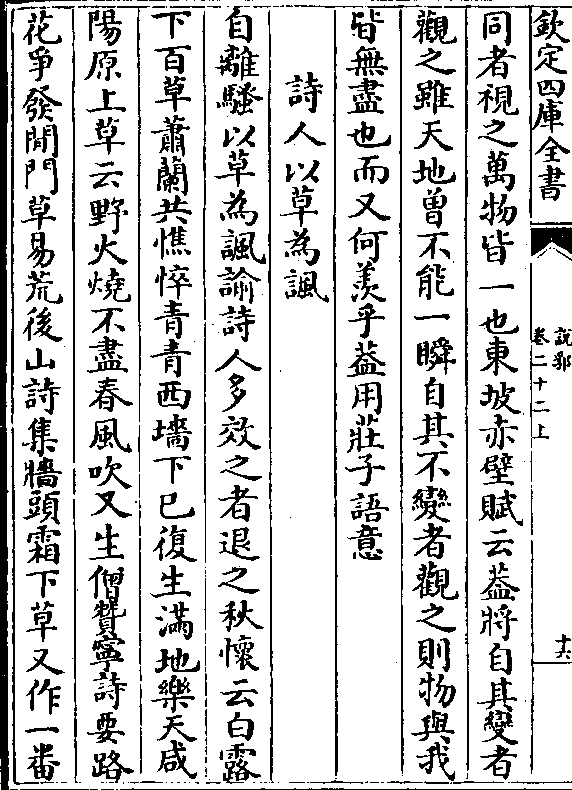 欽定四庫全書
說郛
卷二十二上
十六
同者視之萬物皆一也東坡赤壁賦云葢將自其變者
觀之雖天地曾不能一瞬自其不變者觀之則物與我
皆無盡也而又何羨乎葢用莊子語意
詩人以草為諷
自離騷以草為諷諭詩人多效之者退之秋懷云白露
下百草蕭蘭共憔悴青青西墻下已復生滿地樂天咸
陽原上草云野火燒不盡春風吹又生僧贊寧詩要路
花爭發閒門草易荒後山詩集牆頭霜下草又作一番